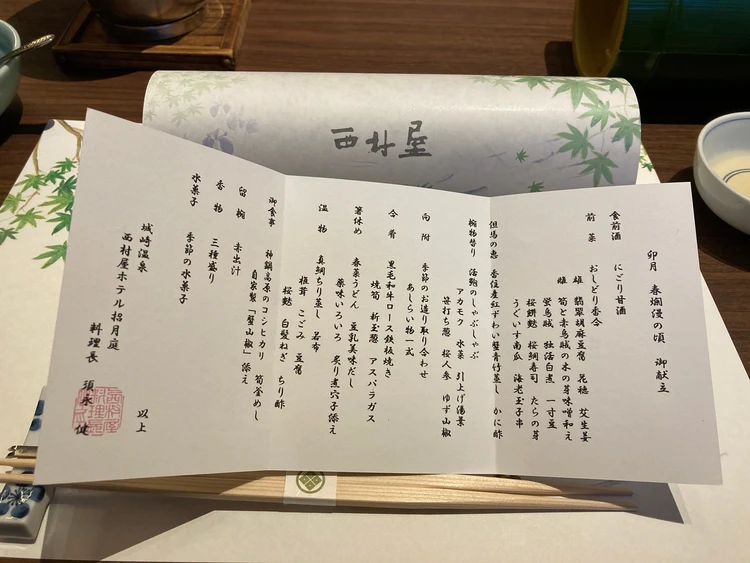 西村屋
卯月 春爛漫の頃 御献立
食前酒 にごり甘酒
前菜 おしどり香合
雄 翡翠胡麻豆腐 花穂 艾生姜
雌 筍と赤烏賊の木の芽味噌和え
蛍烏賊 独活白煮 一寸豆
桜餅麩 桜鯛寿司 たらの芽
うぐいす南瓜 海老玉子串
但馬の恵 香住産紅ずわい蟹青竹蒸し かに酢
椀物替り 活鮑のしゃぶしゃぶ
アカモク 水菜 引上げ湯葉
笹打ち葱 桜人参 ゆず山椒
向附 季節のお造り取り合わせ
あしらい物一式
合肴 黒毛和牛ロース鉄板焼き
焼筍 新玉葱 アスパラガス
箸休め 春菜うどん 豆乳美味だし
薬味いろいろ 炙り煮穴子添え
温物 真鯛ちり蒸し 若布
椎茸 こごみ 豆腐
桜麩 白髪ねぎ ちり酢
御食事 神鍋高原のコシヒカリ 筍釜めし
自家製「蟹山椒」添え
留椀 赤出汁
香物 三種盛り
水菓子 季節の水菓子
以上
城崎温泉
西村屋ホテル招月庭
料理長 須永 健